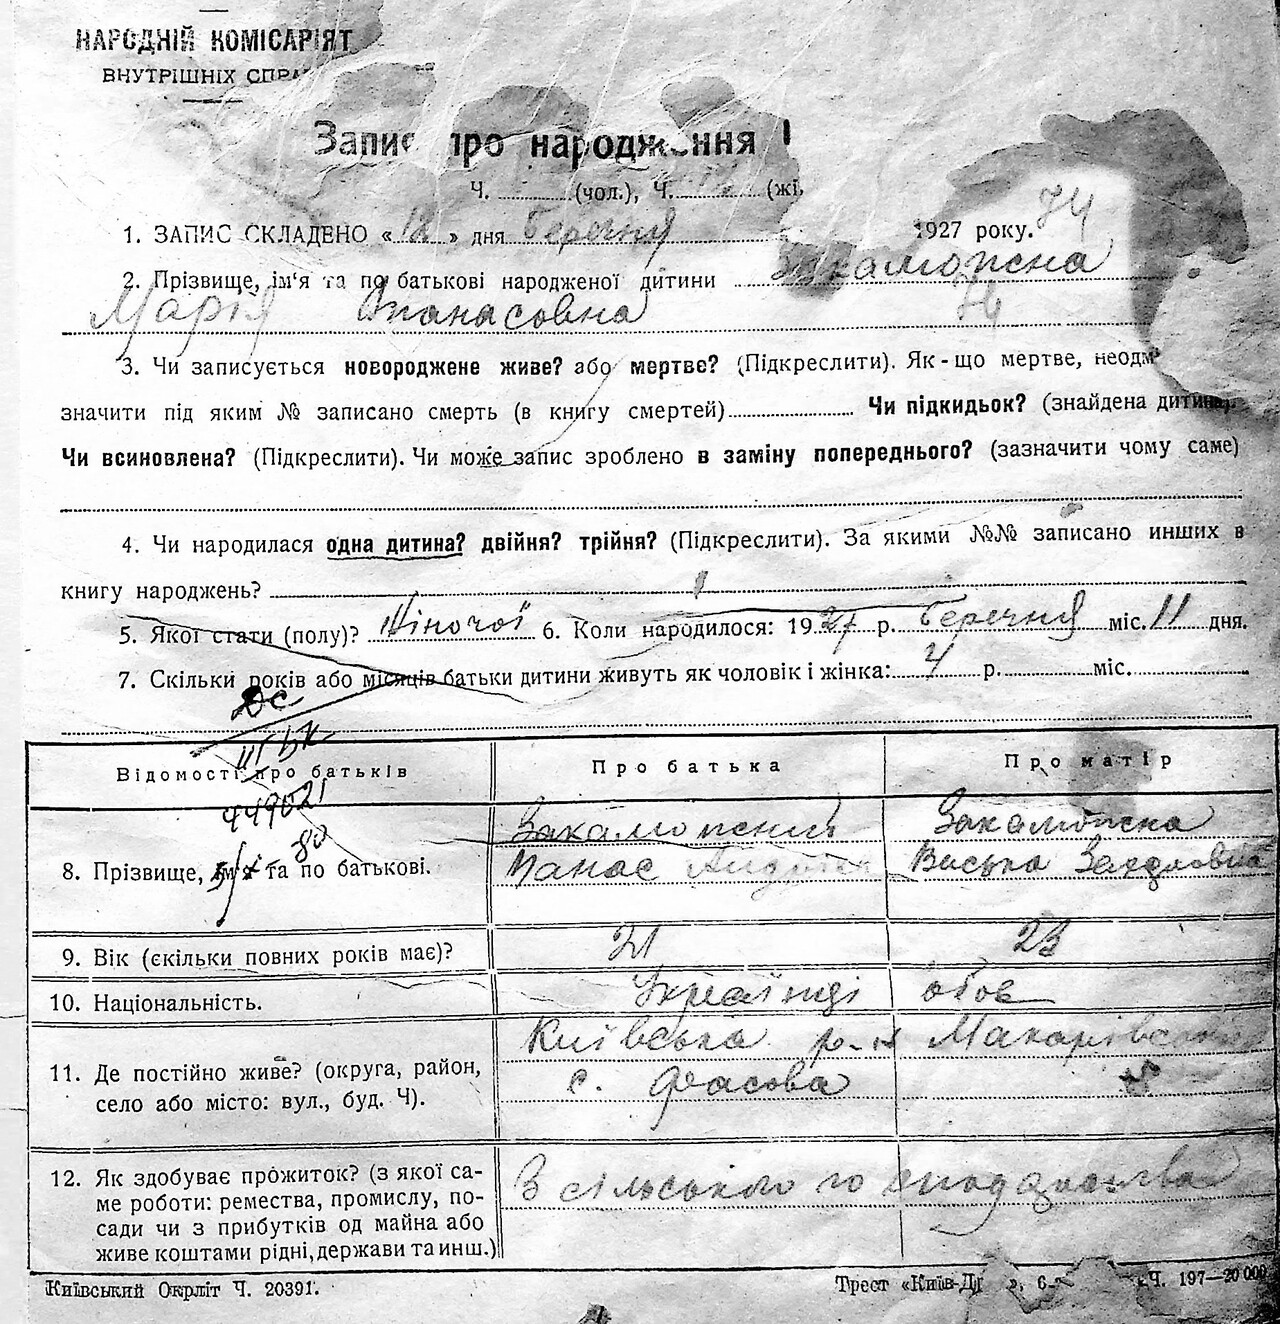 НАРОДНІЙ КОМІСАРІЯТ
ВНУТРІШНІХ СПРА
Запис про народження
Ч. (чол.), Ч. (жі
1. ЗАПИС СКЛАДЕНО « 12 » дня Беречня 1927 року. 74
2. Прізвище, ім'я та по батькові народженої дитини Закаможна
Марія Опанасовна 74
3. Чи записується новороджене живе? або мертве? (Підкреслити). Як-що мертве, неодм
значити під яким № записано смерть (в книгу смертей) Чи підкидьок? (знайдена дитина).
Чи всиновлена? (Підкреслити). Чи може запис зроблено в заміну попереднього? (зазначити чому саме)
4. Чи народилася одна дитина? двійня? трійня? (Підкреслити). За якими №№ записано инших в
книгу народжень?
5. Якої стати (полу)? Жіночої 6. Коли народилося: 1927 р. Беречня міс. 11 дня.
7. Скільки років або місяців батьки дитини живуть як чоловік і жінка: 4 р. міс.
Відомості про батьків Про батька Про матір
449021
80
Закаможний Закаможна
8. Прізвище, ім'я та по батькові. Панас Васька
9. Вік (скільки повних років має)? 21 23
10. Національність. Українці обоє
Київська р-н Макарівський
11. Де постійно живе? (округа, район,
село або місто: вул., буд. Ч). с. Фасова
12. Як здобуває прожиток? (з якої са-
ме роботи: ремества, промислу, по-
сади чи з прибутків од майна або
живе коштами рідні, держави та инш.)
З сільського господарства
Київський Окрліт Ч. 20391. Трест «Київ-Д », 6- Ч. 197—20 000